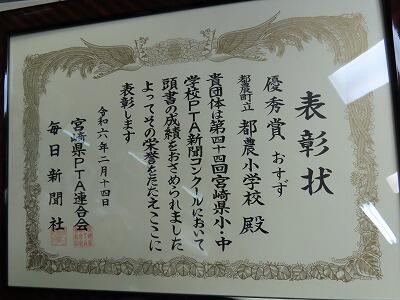 表彰状
優秀賞 おすず
都農町立 都農小学校 殿
貴団体は第四十四回宮崎県小・中
学校PTA新聞コンクールにおいて、
頭書の成績をおさめられました
よってその栄誉をたたえここに
表彰します
令和六年二月十四日
宮崎県PTA連合会
毎日新聞社